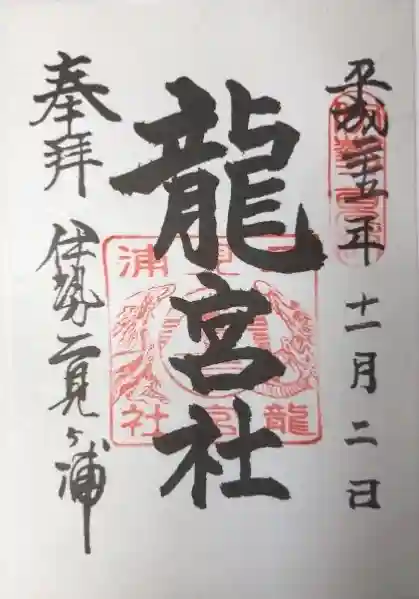 平成二十五年十一月二日
龍宮社
奉拝 伊勢二見ヶ浦
二見浦
龍宮社